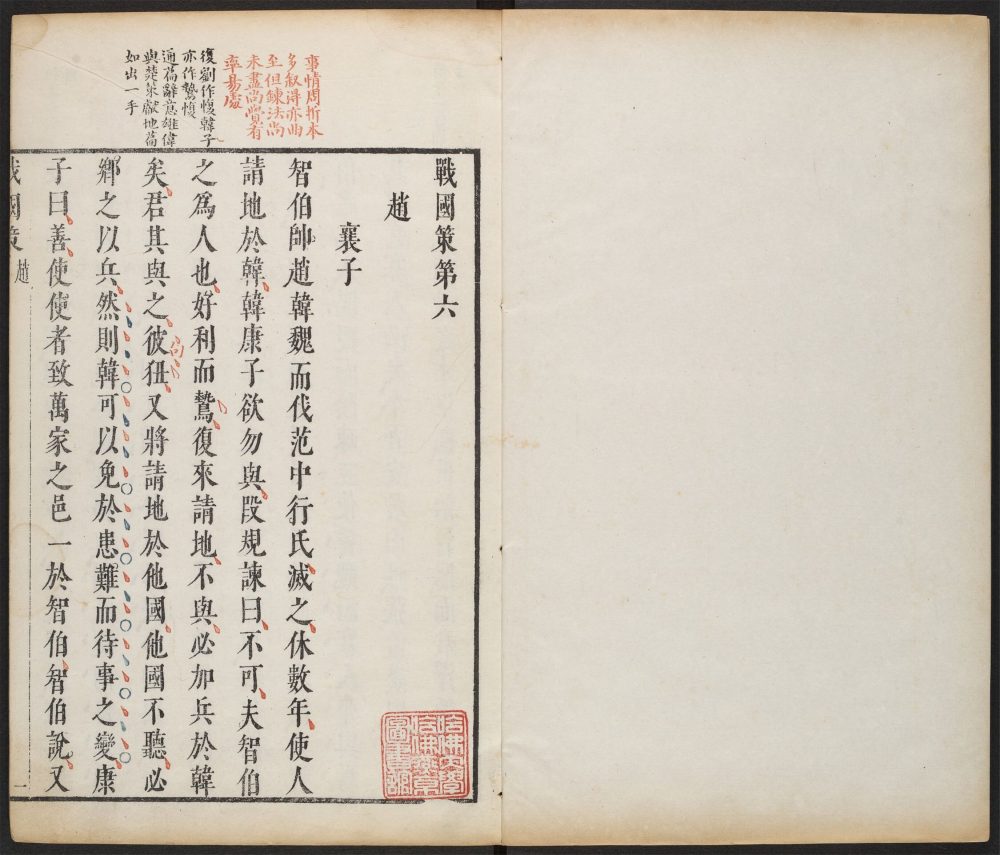 事情周折本
多叙得亦曲
至但鍊法尚
未盡尚覺有
率易處
復劉作愎韓子
亦作鷙愎
通篇辭意雄偉
與葬栗獻地篇
如出一手
戰國策第六
趙
襄子
智伯帥趙韓魏而伐范中行氏滅之休數年使人
請地於韓韓康子欲勿與段規諫曰不可夫智伯
之爲人也好利而鷙復來請地不與必加兵於韓
矣君其與之彼狃又將請地於他國他國不聽必
鄉之以兵然則韓可以免於患難而待事之變康
子曰善使使者致萬家之邑一於智伯智伯說又
戰國策
趙
一
句
哈佛大學
哈佛燕京
圖書館